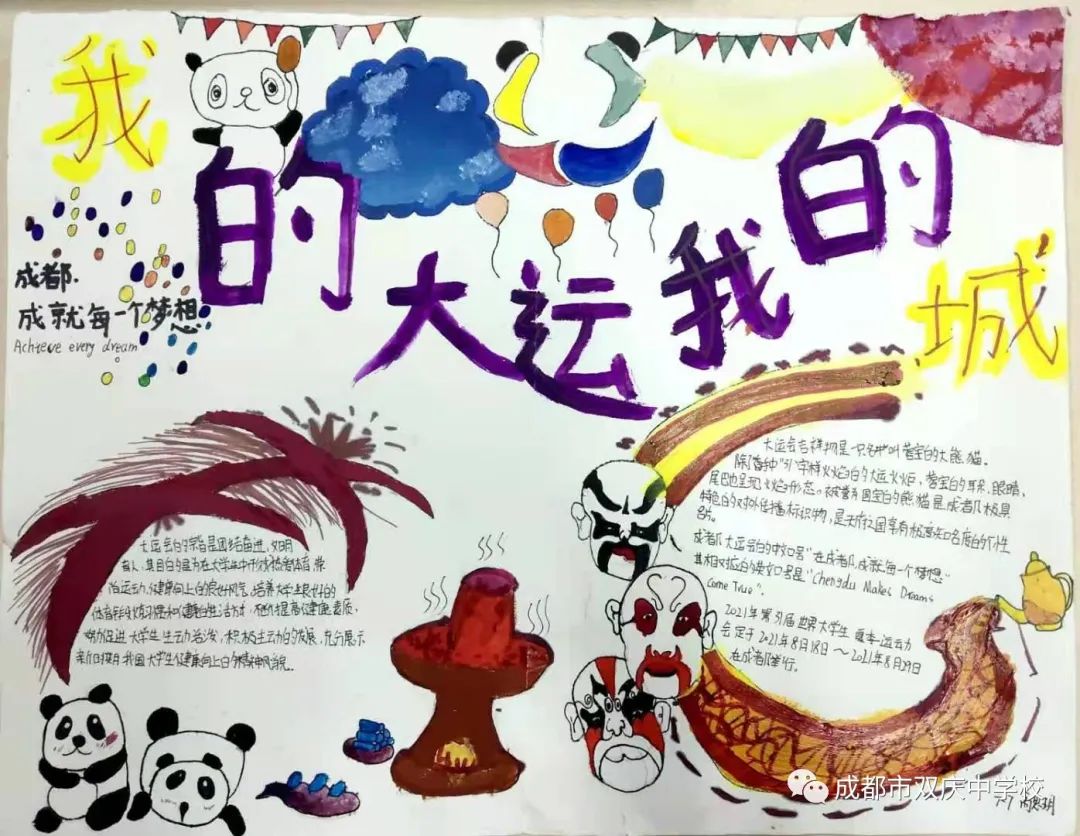 我的大运我的城
成都.
成就每一个梦想
Achieve every dream
大运会的宗旨是团结奋进,文明
育人,其目的是为在大学生中形成
尚运动,健康向上的良好风气,培养大学生良好的
体育和健康的生活方式
努力促进大学生生动活泼,积极主动的发展,充分展示
我国大学生健康向上的精神风貌。
大运会吉祥物是一只名叫蓉宝的大熊猫。
字样火焰的大运火炬,蓉宝的耳朵、眼睛、
尾巴也呈现火焰形态。被誉为国宝的熊猫是成都极具
特色的对外传播标识物,是天府之国享有极高知名度的个性
名片。
成都大运会的中文口号"在成都成就每一个梦想"
其相对应的英文口号是"Chengdu Makes Dreams
Come True".
2021年第31届世界大学生夏季运动
会定于2021年8月18日~2021年8月29日
在成都举行。
成都市双庆中学校
7-7